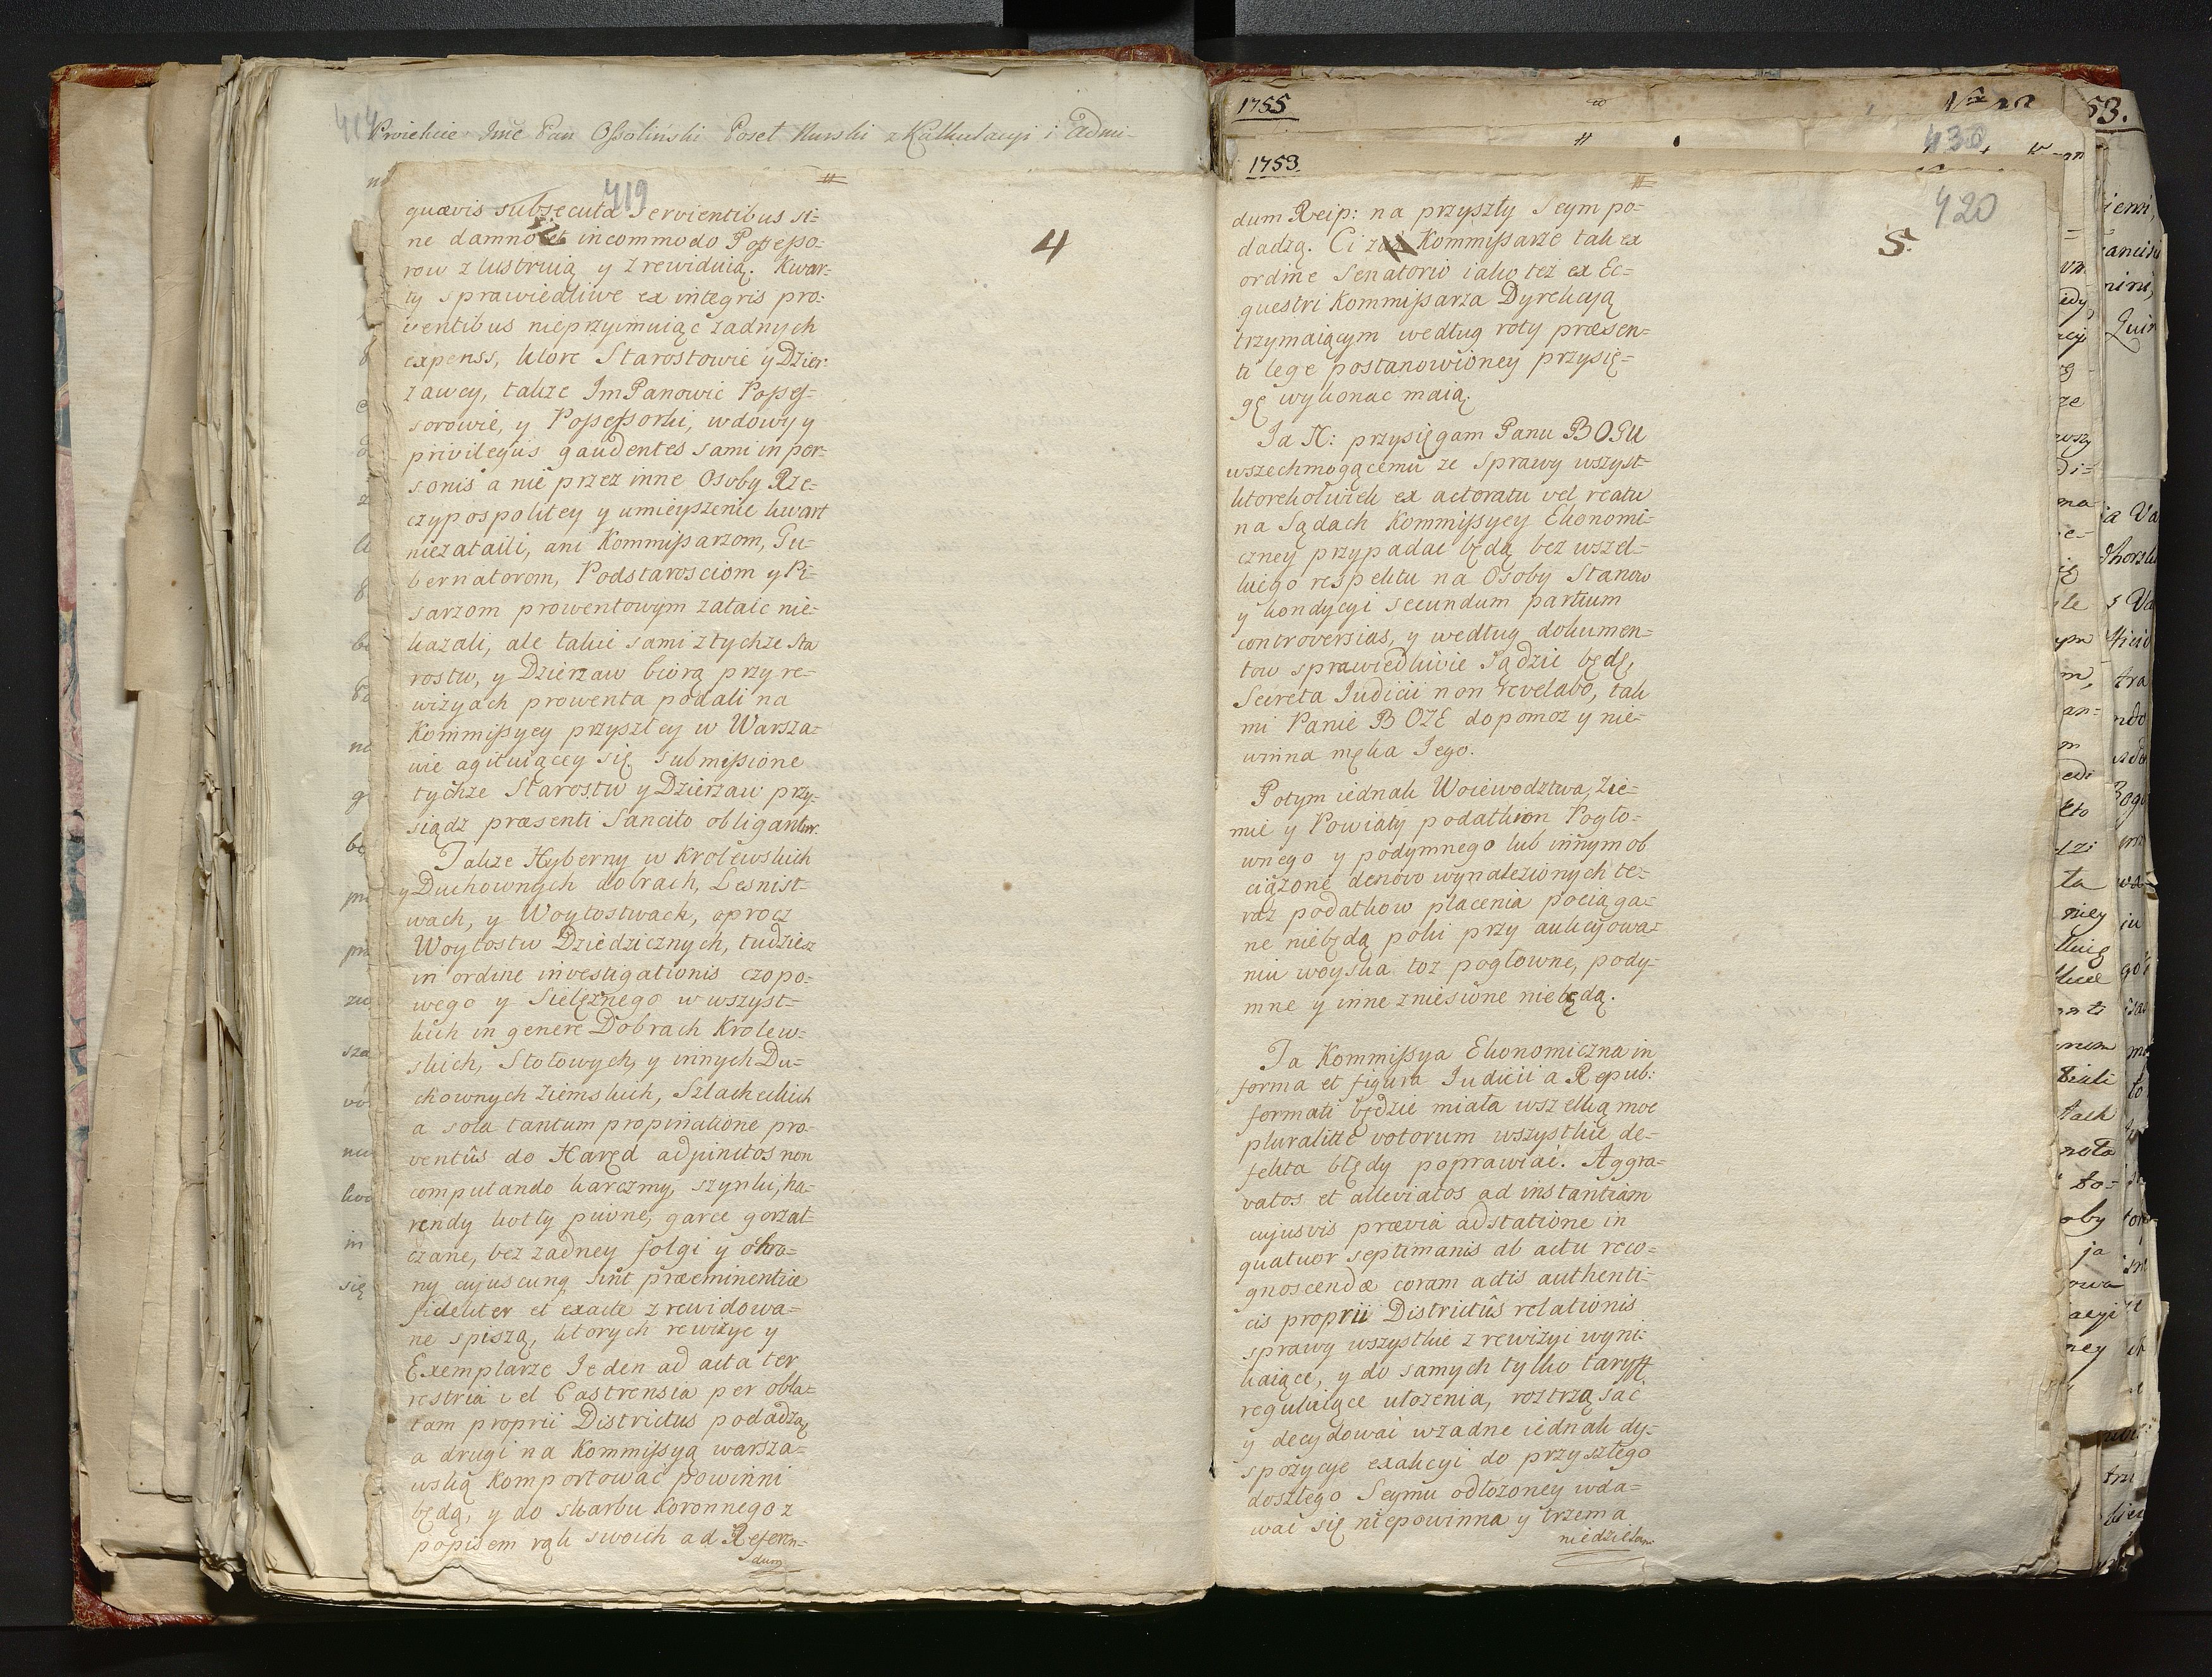 414
Proiekcie Imć Pan Ossoliński Poseł Nurski z Kalkulacyi i Admi-
419
4
quævis subsecuta servientibus si-
ne damno et incommodo Possesso-
row zlustruią y zrewiduią. Kwar-
ty sprawiedliwe ex integris pro-
ventibus nieprzyimuiąc zadnych
expenss, ktore Starostowie y Dzier-
zawcy, takze ImPanowie Posses-
sorowie, y Possessorki, wdowy y
privilegiis gaudentes sami in per-
sonis a nie przez inne Osoby Rze-
czypospolitey y umieyszenie kwart
niezataili, ani Kommissarzom, Gu-
bernatorom, Podstarosciom y Pi-
sarzom prowentowym zataic nie-
kazali, ale takie sami ztychze Sta
rostw, y Dzierzaw biorą przy re-
wizyach prowenta podali na
Kommissyey przyszłey w Warsza-
wie agituiącey się submissione
tychze Starostw y Dzierzaw przy-
siądz præsenti Sancito obligantur.
Takze Hyberny w Krolewskich
y Duchownych dobrach, Lesnist-
wach, y Woytostwach, oprocz
Woytostw Dziedzicznych, tudziesz
in ordine investigationis czopo-
wego y Sielęznego w wszyst-
kich in genere Dobrach Krolew-
skich, Stołowych, y innych Du-
chownych Ziemskich, Szlacheckich
a sola tantum propinatione pro-
ventûs do Haręd adjunctos non
computando karczmy, szynki, ha-
rendy kotły piwne, garce gorzał-
czane, bez zadney folgi y ohro-
ny cujuscunq sint præeminentiæ
fideliter et exacte zrewidowa-
ne spiszą, ktorych rewizye y
Exemplarze Ieden ad acta ter
restria vel Castrensia per obla-
tam proprii Districtus podadzą
a drugi na Kommissyą warsza-
wską Komportować powinni
będą, y do skarbu Koronnego z
popisem rąk swoich ad Referen-
dum
1755
1753
430
53.
420
5.
dum Reip: na przyszły Seym po-
dadzą. Ci zaś Kommissarze tak ex
ordine Senatorio iako tez ex Ec-
questri Kommissarza Dyrekcyą
trzymaiącym według roty præsen-
ti lege postanowioney przysię-
gę wykonac maią.
Ja N: przysięgam Panu BOGU
wszechmogącemu ze Sprawy wszyst-
ktorekolwiek ex actoratu vel reatu
na Sądach Kommissyey Ekonomi-
czney przypadac będą bez wszel-
kiego respektu na Osoby Stanow
y kondycyi secundum partium
controversias, y według dokumen-
tow sprawiedliwie sądzic będę,
Secreta Iudicii non revelabo, tak
mi Panie BOZE dopomoz y nie-
winna męka Iego.
Potym iednak Woiewodztwa, Zie-
mie y Powiaty podatkiem Pogło-
wnego y podymnego lub innym ob
ciązone denovo wynalezionych te-
raz podatkow płacenia pociąga-
ne niebędą poki przy aukcyowa-
niu woyska toz pogłowne, pody-
mne y inne zniesione niebędą.
Ta Kommissya Ekonomiczna in
forma et figura Iudicii a Repub:
formati będzie miała wszelką moc
pluralitte votorum wszystkie de-
fekta błędy poprawiać. Aggra-
vatos et alleviatos ad instantiam
cujusvis prævia adstatione in
quatuor septimanis ab actu reco-
gnoscendæ coram actis authenti-
cis proprii Districtûs relationis
sprawy wszystkie z rewizyi wyni-
kaiące, y do samych tylko taryff
reguluiące ułozenia, roztrząsać
y decydować wzadne iednak dy-
spozycye exakcyi do przyszłego
doszłego Seymu odłozoney wda-
wać się niepowinna y trzema
niedzielami